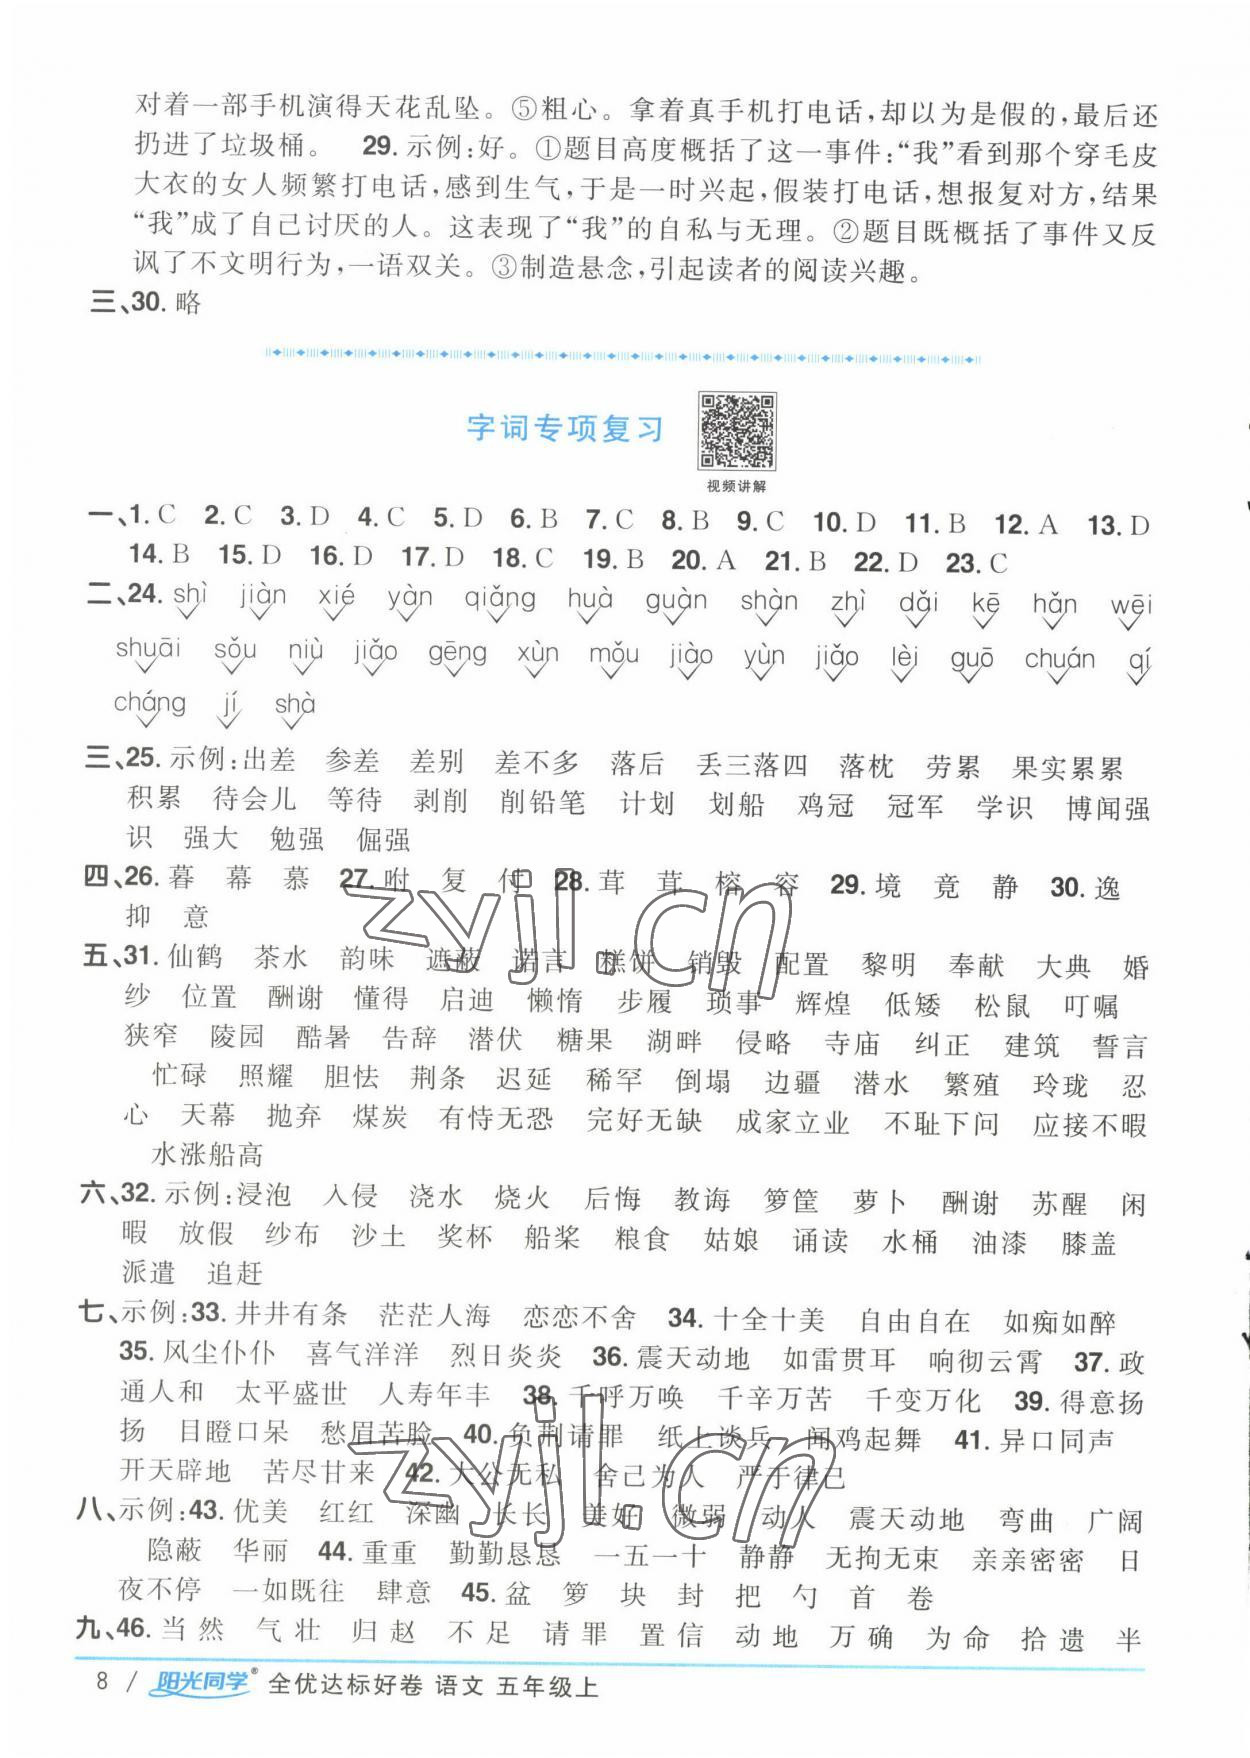 对着一部手机演得天花乱坠。⑤粗心。拿着真手机打电话,却以为是假的,最后还
扔进了垃圾桶。 29. 示例:好。①题目高度概括了这一事件:“我”看到那个穿毛皮
大衣的女人频繁打电话,感到生气,于是一时兴起,假装打电话,想报复对方,结果
“我”成了自己讨厌的人。这表现了“我”的自私与无理。②题目既概括了事件又反
讽了不文明行为,一语双关。③制造悬念,引起读者的阅读兴趣。
三、30. 略
字词专项复习
视频讲解
一、1. C 2. C 3. D 4. C 5. D 6. B 7. C 8. B 9. C 10. D 11. B 12. A 13. D
14. B 15. D 16. D 17. D 18. C 19. B 20. A 21. B 22. D 23. C
二、24. shì jiàn xié yàn qiǎng huà guàn shàn zhì dǎi kē hǎn wēi
shuāi sǒu niù jiǎo gēng xùn mǒu jiào yùn jiǎo lèi guō chuán qí
cháng jí shà
三、25. 示例:出差 参差 差别 差不多 落后 丢三落四 落枕 劳累 果实累累
积累 待会儿 等待 剥削 削铅笔 计划 划船 鸡冠 冠军 学识 博闻强
识 强大 勉强 倔强
四、26. 暮 幕 慕 27. 咐 复 付 28. 茸 茸 榕 容 29. 境 竟 静 30. 逸
抑 意
五、31. 仙鹤 茶水 韵味 遮蔽 诺言 糕饼 销毁 配置 黎明 奉献 大典 婚
纱 位置 酬谢 懂得 启迪 懒惰 步履 琐事 辉煌 低矮 松鼠 叮嘱
狭窄 陵园 酷暑 告辞 潜伏 糖果 湖畔 侵略 寺庙 纠正 建筑 誓言
忙碌 照耀 胆怯 荆条 迟延 稀罕 倒塌 边疆 潜水 繁殖 玲珑 忍
心 天幕 抛弃 煤炭 有恃无恐 完好无缺 成家立业 不耻下问 应接不暇
水涨船高
六、32. 示例:浸泡 入侵 浇水 烧火 后悔 教诲 箩筐 萝卜 酬谢 苏醒 闲
暇 放假 纱布 沙土 奖杯 船桨 粮食 姑娘 诵读 水桶 油漆 膝盖
派遣 追赶
七、示例:33. 井井有条 茫茫人海 恋恋不舍 34. 十全十美 自由自在 如痴如醉
35. 风尘仆仆 喜气洋洋 烈日炎炎 36. 震天动地 如雷贯耳 响彻云霄 37. 政
通人和 太平盛世 人寿年丰 38. 千呼万唤 千辛万苦 千变万化 39. 得意扬
扬 目瞪口呆 愁眉苦脸 40. 负荆请罪 纸上谈兵 闻鸡起舞 41. 异口同声
开天辟地 苦尽甘来 42. 大公无私 舍己为人 严于律己
八、示例:43. 优美 红红 深幽 长长 美好 微弱 动人 震天动地 弯曲 广阔
隐蔽 华丽 44. 重重 勤勤恳恳 一五一十 静静 无拘无束 亲亲密密 日
夜不停 一如既往 肆意 45. 盆 箩 块 封 把 勺 首 卷
九、46. 当然 气壮 归赵 不足 请罪 置信 动地 万确 为命 拾遗 半
8 / 阳光同学® 全优达标好卷 语文 五年级上
zyjl.cn
zyjl.cn